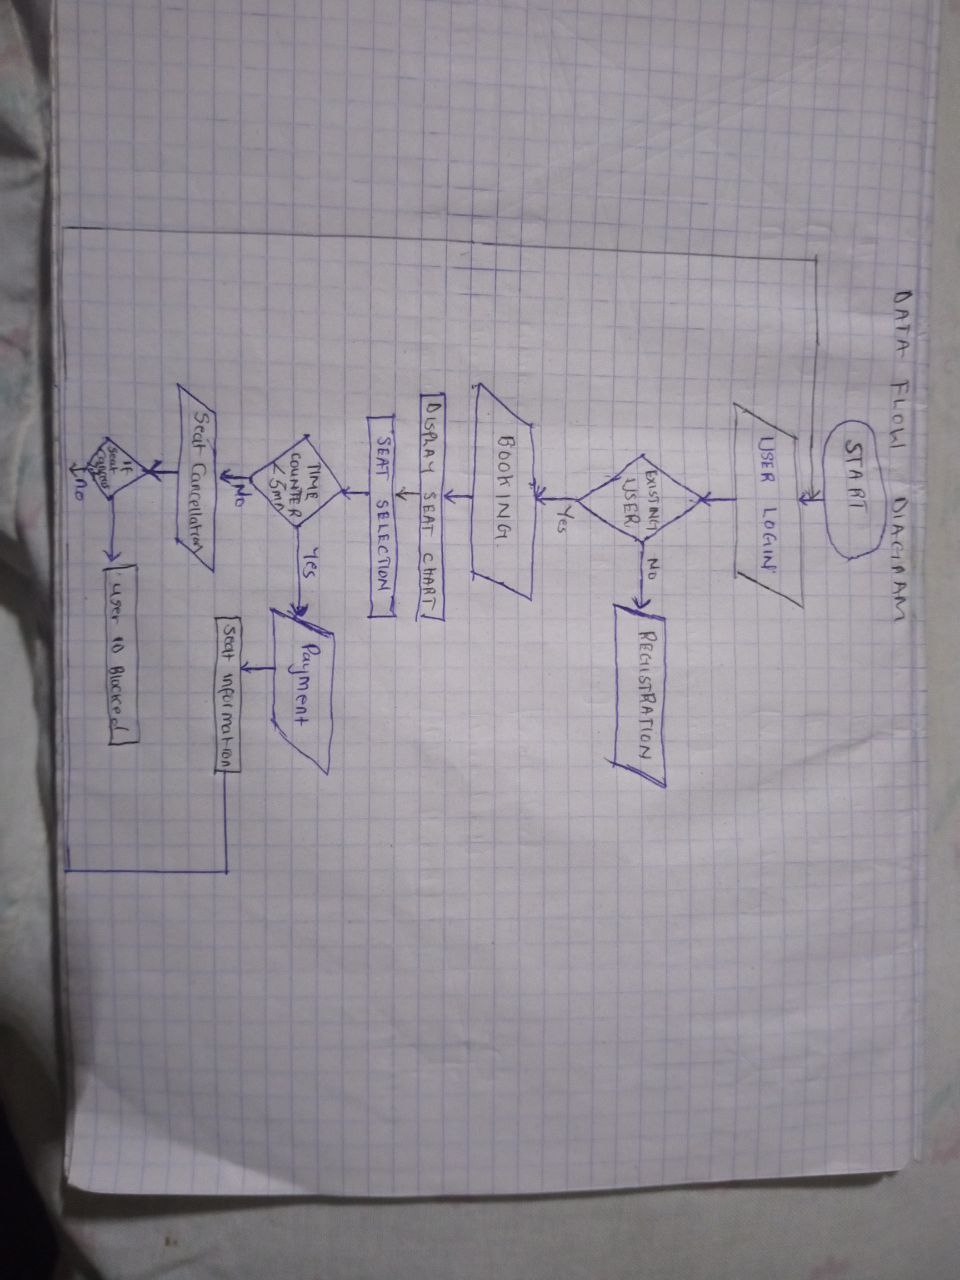 DATA FLOW DIAGRAM
START
USER LOGIN
EXISTING
USER
NO
REGISTRATION
Yes
BOOKING
DISPLAY SEAT CHART
SEAT SELECTION
TIME
COUNTER
< 5mn
Yes
Payment
NO
Seat information
Seat Cancellation
If
Seat
User ID Blocked
no